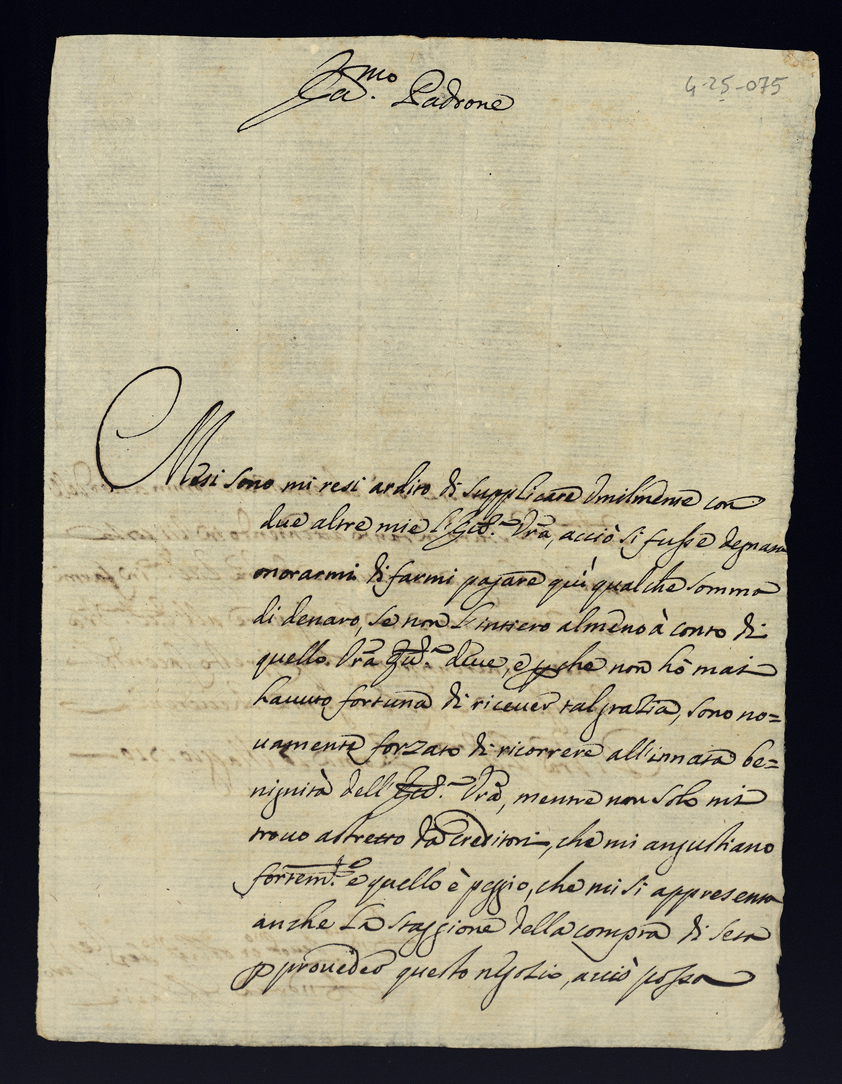 Ecc.mo Padrone
4-25-075
Mesi sono mi resi ardito di supplicare vmilmense con
due altre mie l'Ecc.a Vrã, acciò si fusse degnata
onorarmi di farmi pagare quì qualche somma
di denaro, se non l'intiero almeno à conto di
quello Vrã Ecc.a deue, e perche non hò mai
hauuto fortuna di riceuer tal grazia, sono no=
uamente forzato di ricorrere all'innata be=
nignità dell'Ecc.a Vrã, mentre non solo mi
trouo astretto da Creditori, che mi angustiano
fortem.te e quello è peggio, che mi si appresenta
anche la staggione della compra di seta
p prouedeo questo negozio, acciò possa